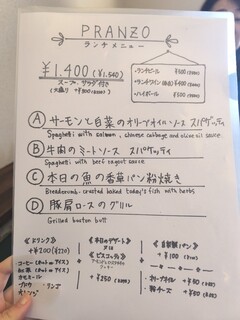 PRANZO
ランチメニュー
¥1,400 (¥1,540)
スープ、サラダ付き
(大盛り +¥200(220))
・ランチビール ¥500(550)
・ランチワイン(赤白) ¥400(440)
・ハイボール ¥500(550)
Ⓐ サーモンと白菜のオリーブオイルソース スパゲッティ
Spaghetti with salmon, chinese cabbage and olive oil sauce.
Ⓑ 牛肉のミートソース スパゲッティ
Spaghetti with beef ragout sauce
Ⓒ 本日の魚の香草パン粉焼き
Breadcrumb crusted baked today's fish with herbs
Ⓓ 豚肩ロースのグリル
Grilled boston butt
《ドリンク》
+¥200(¥220)
・コーヒー(Hot or アイス)
・紅茶(Hot or アイス)
・カモミール
《本日のデザート》
ビスコッティ
+¥250
《自家製パン》
+¥100
・オリーブオイル ¥50
・粉チーズ ¥60